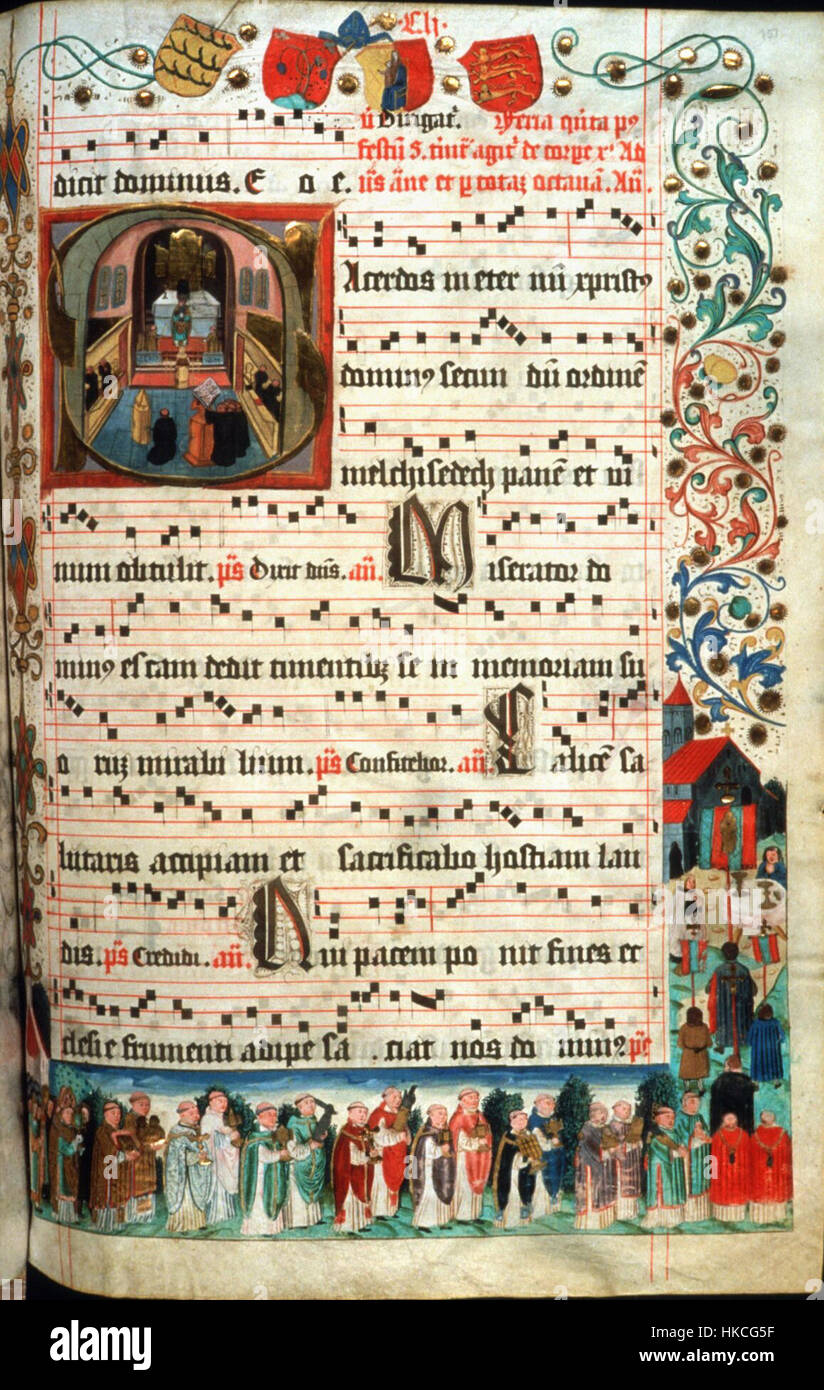 ·Clj·
151
v̄ Dirigat᷑. Feria quīta pꝰ
festū S. t͛nīt͛ agit᷑ de corpe xͥ Ad
dixit dominus. E o e. v͛s āne et p totaꝫ octauā. An̄.
Acerdos in eter nū xpristꝰ
dominꝰ secun dū ordinē
melchisedech panē et vi
num obtulit. p̄s Dixit dn̄s. an̄. Miserator do
minꝰ escam dedit timentibꝫ se in memoriam su
o ruꝫ mirabi lium. p̄s Confitebor. an̄ Calicē sa
lutaris accipiam et sacrificabo hostiam lau
dis. p̄s Credidi. an̄. Qui pacem po nit fines ec
clesie frumenti adipe sa .ciat nos do minꝰ p̄s
alamy
alamy stock photo
HKCG5F
www.alamy.com